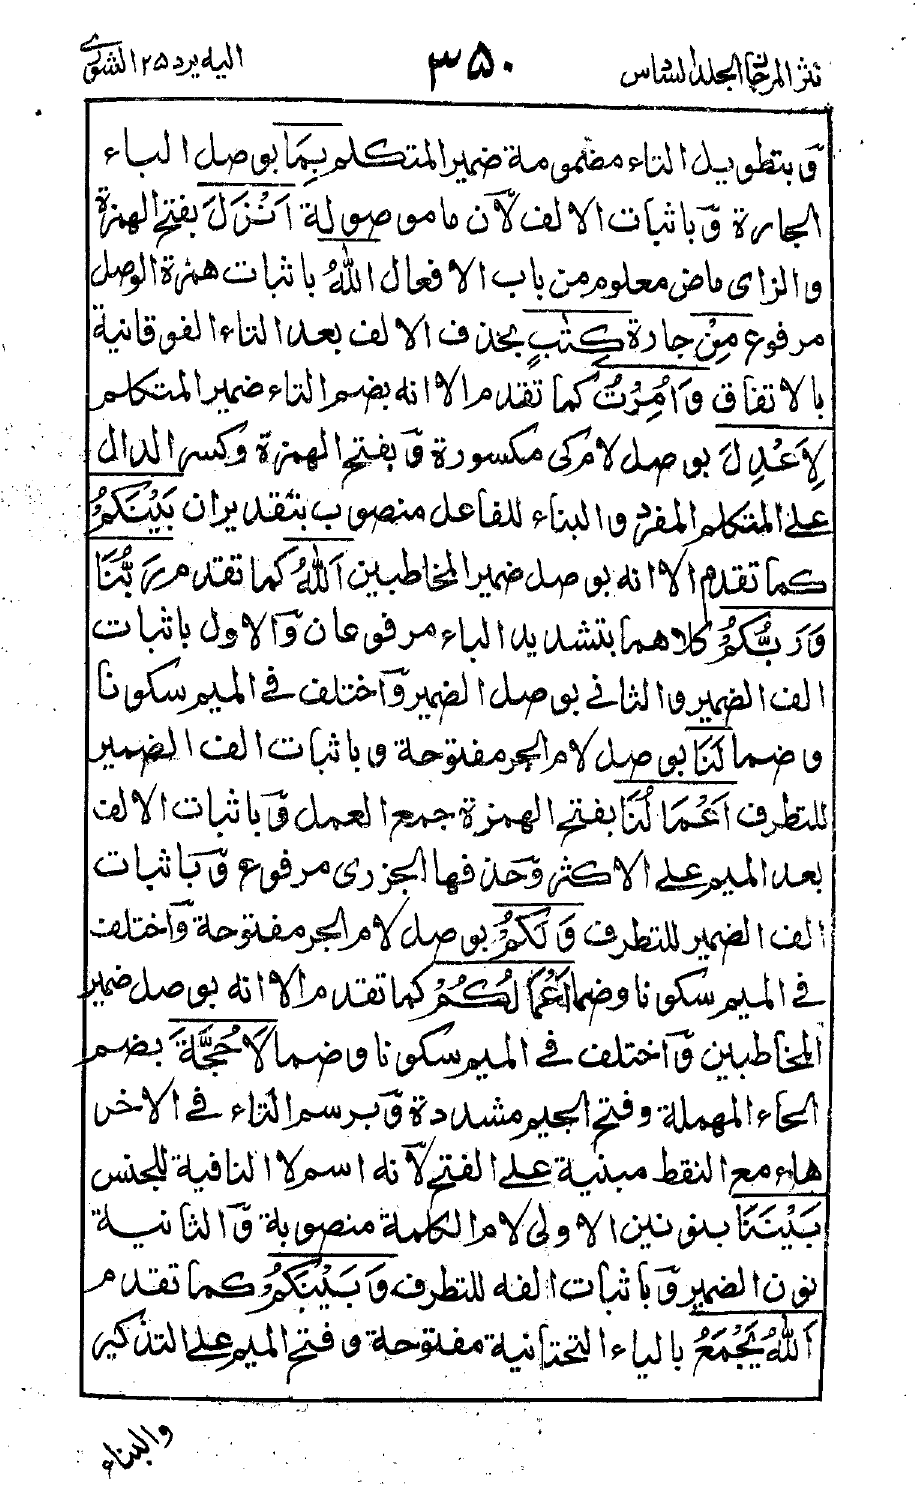 نثر المرجان المجلد السادس
۳۵۰
اليه يرد ۲۵ الشورى
وبتطويل التاء مضمومة ضمير المتكلم بِمَا بوصل الباء
الجارة وباثبات الالف لان ما موصولة اَنْزَلَ بفتح الهمزة
والزاى ماض معلوم من باب الافعال اللّٰهُ باثبات همزة الوصل
مرفوع مِنْ جارة كِتٰبٍ بحذف الالف بعد التاء الفوقانية
بالاتفاق وَاُمِرْتُ كما تقدم الا انه بضم التاء ضمير المتكلم
لِاَعْدِلَ بوصل لام كى مكسورة وبفتح الهمزة وكسر الدال
على المتكلم المفرد والبناء للفاعل منصوب بتقدير ان بَيْنَكُمْ
كما تقدم الا انه بوصل ضمير المخاطبين اَللّٰهُ كما تقدم رَبُّنَا
وَرَبُّكُمْ كلاهما بتشديد الباء مرفوعان والاول باثبات
الف الضمير والثانى بوصل الضمير واختلف فى الميم سكونا
وضما لَنَا بوصل لام الجر مفتوحة وباثبات الف الضمير
للتطرف اَعْمَالُنَا بفتح الهمزة جمع العمل وباثبات الالف
بعد الميم على الاكثر وحذفها الجزرى مرفوع وباثبات
الف الضمير للتطرف وَلَكُمْ بوصل لام الجر مفتوحة واختلف
فى الميم سكونا وضما اَعْمَالُكُمْ كما تقدم الا انه بوصل ضمير
المخاطبين واختلف فى الميم سكونا وضما لَا حُجَّةَ بضم
الحاء المهملة وفتح الجيم مشددة وبرسم التاء فى الاخر
هاء مع النقط مبنية على الفتح لانه اسم لا النافية للجنس
بَيْنَنَا بنونين الاولى لام الكلمة منصوبة والثانية
نون الضمير وباثبات الفه للتطرف وَبَيْنَكُمْ كما تقدم
اَللّٰهُ يَجْمَعُ بالياء التحتانية مفتوحة وفتح الميم على التذكير
والبناء